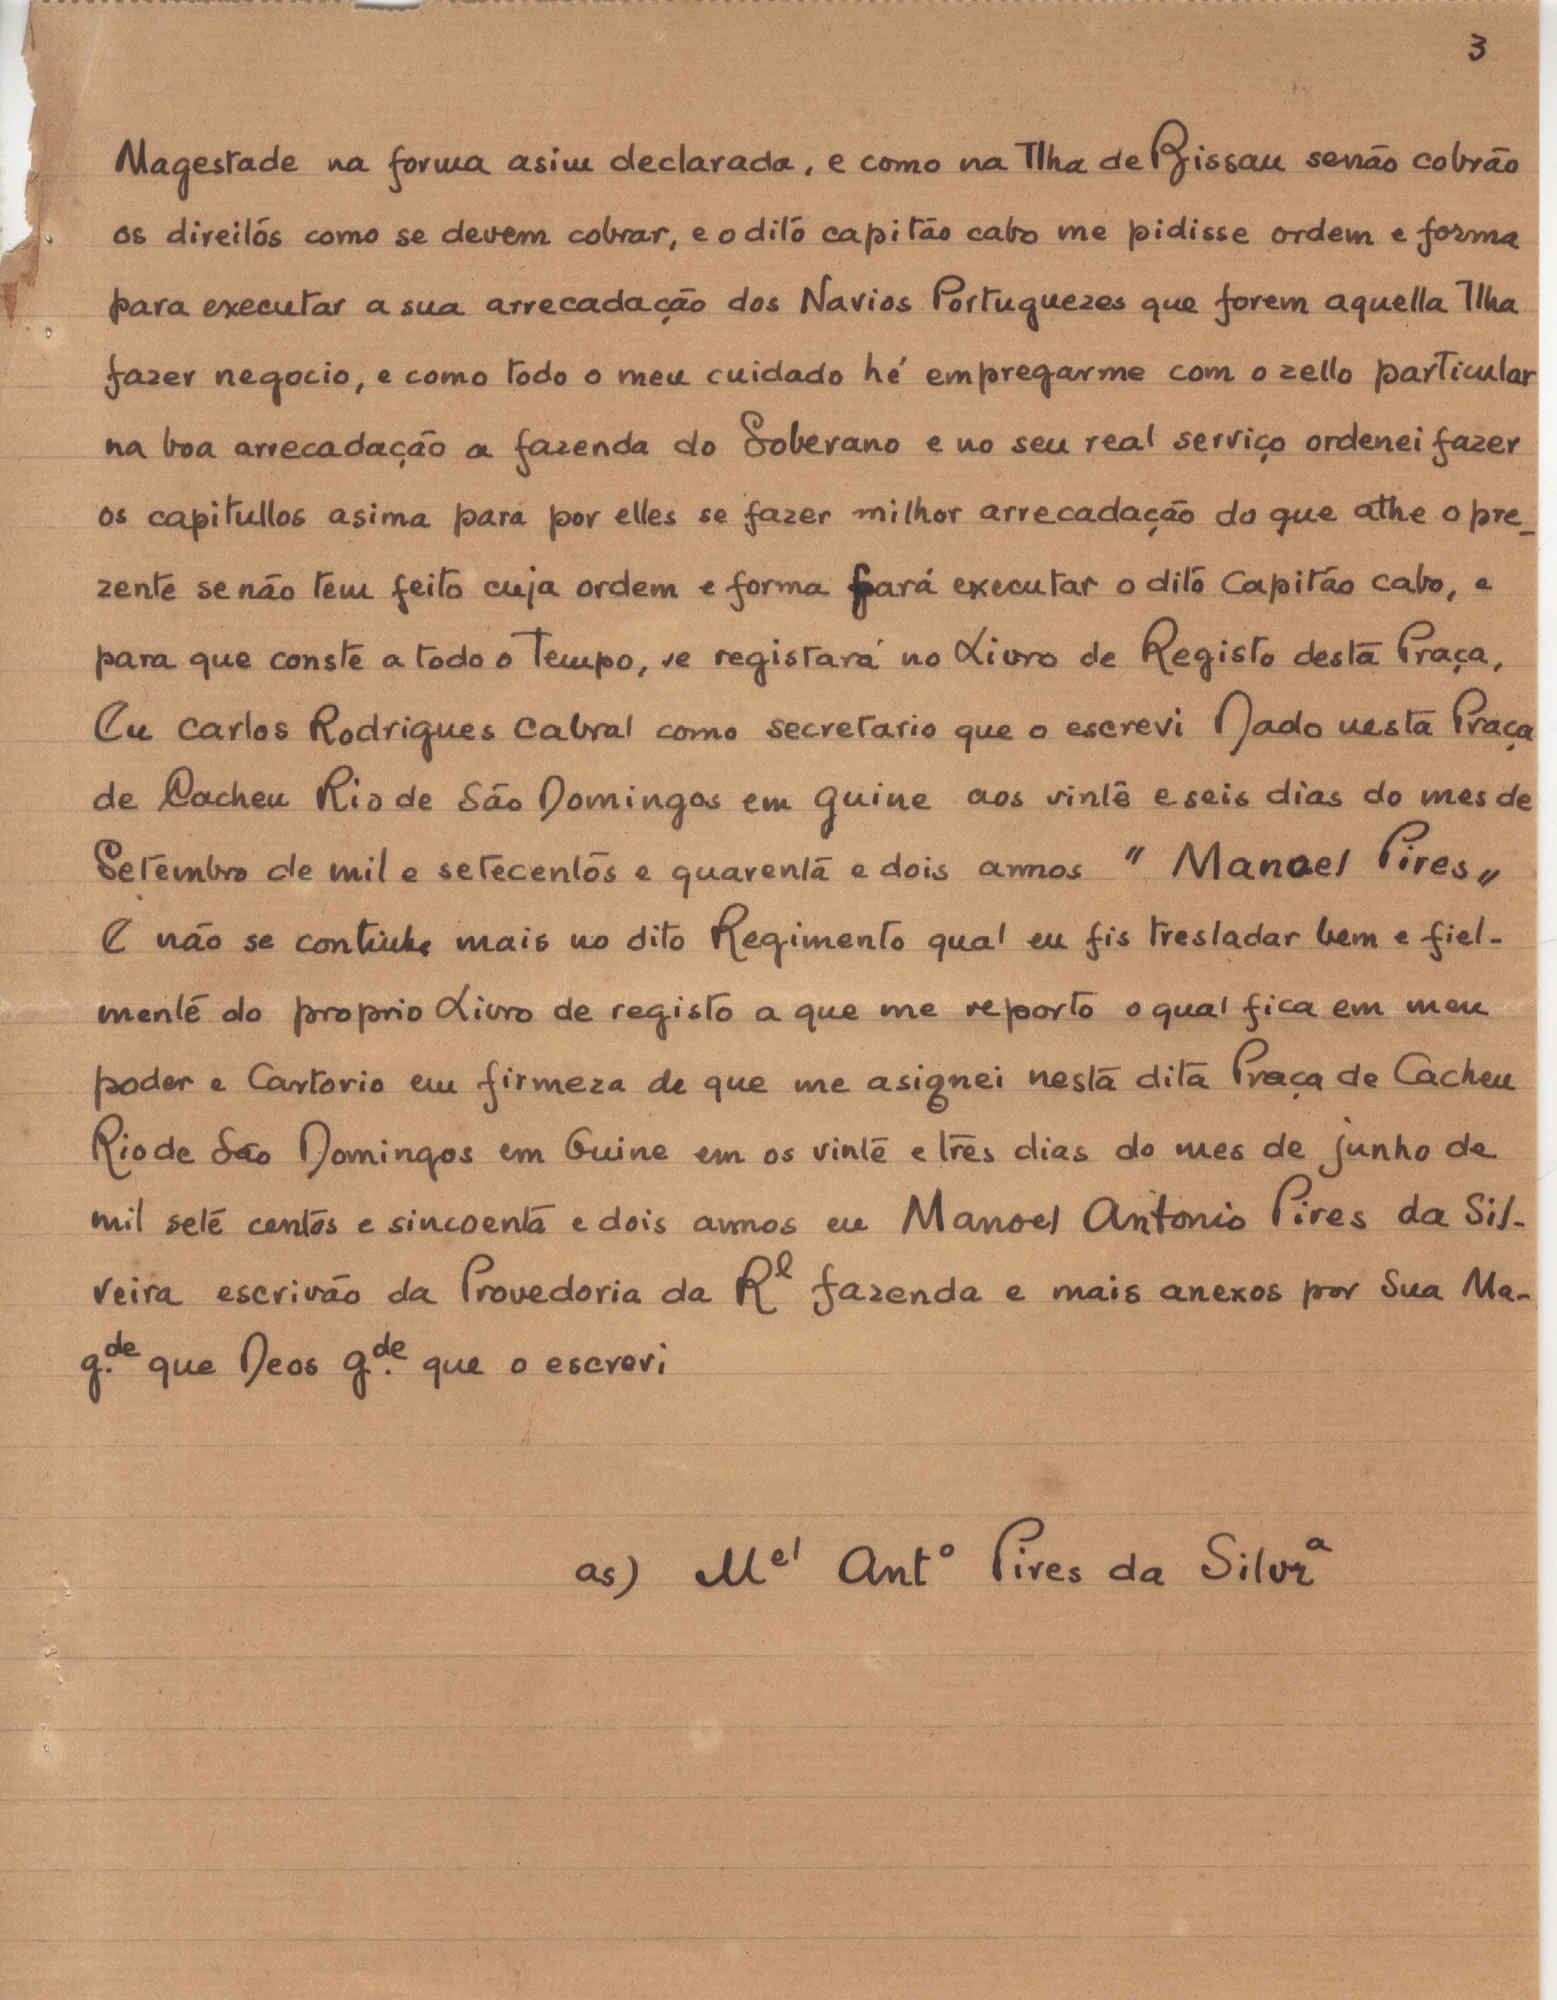 3
Magestade na forma asim declarada, e como na Ilha de Bissau senão cobrão
os direitos como se devem cobrar, e o dito capitão cabo me pidisse ordem e forma
para executar a sua arrecadação dos Navios Portuguezes que forem aquella Ilha
fazer negocio, e como todo o meu cuidado hé empregarme com o zello particular
na boa arrecadação a fazenda do Soberano e no seu real serviço ordenei fazer
os capitullos asima para por elles se fazer milhor arrecadação do que athe o pre-
zente se não tem feito cuja ordem e forma fará executar o dito Capitão cabo, e
para que conste a todo o Tempo, se registará no Livro de Registo desta Praça,
Eu Carlos Rodrigues Cabral como secretario que o escrevi Dado nesta Praça
de Cacheu Rio de São Domingos em guine aos vinte e seis dias do mes de
Setembro de mil e setecentos e quarenta e dois annos " Manoel Pires "
E não se continha mais no dito Regimento qual eu fis tresladar bem e fiel-
mente do proprio Livro de registo a que me reporto o qual fica em meu
poder e Cartorio em firmeza de que me asignei nesta dita Praça de Cacheu
Rio de São Domingos em Guine em os vinte e três dias do mes de junho de
mil sete centos e sincoenta e dois annos eu Manoel Antonio Pires da Sil-
veira escrivão da Provedoria da Rl fazenda e mais anexos por Sua Ma-
g.de que Deos g.de que o escrevi
as) Mel Anto Pires da Silvra